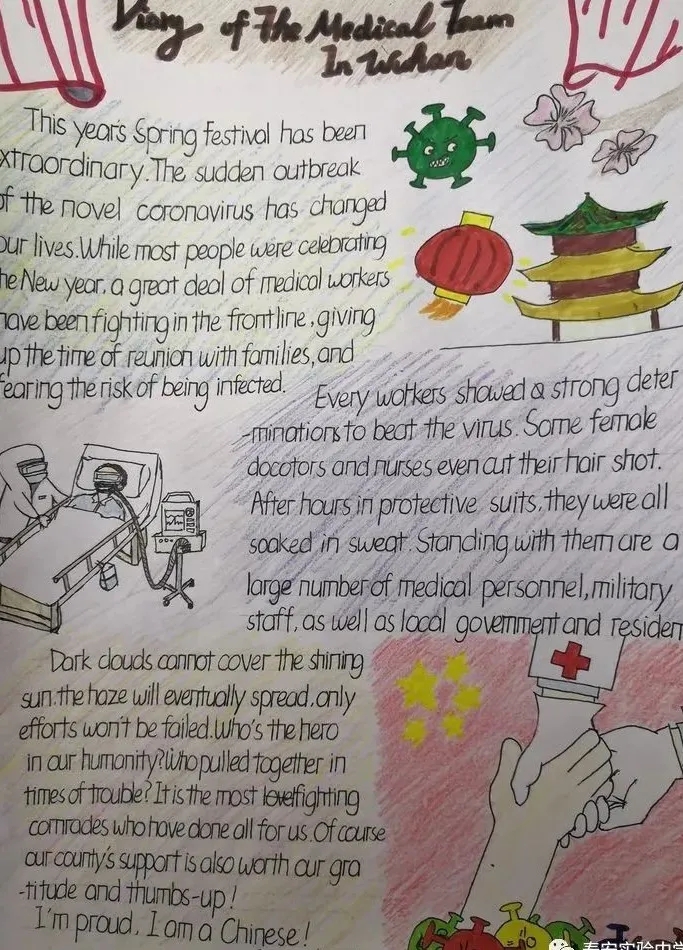 Diary of The Medical Team
In Wuhan
This year's Spring Festival has been
xtraordinary. The sudden outbreak
of the novel coronavirus has changed
our lives. While most people were celebrating
he New year, a great deal of medical workers
have been fighting in the frontline, giving
up the time of reunion with families, and
fearing the risk of being infected.
Every workers showed a strong deter
-minations to beat the virus. Some female
docotors and nurses even cut their hair shot.
After hours in protective suits, they were all
soaked in sweat. Standing with them are a
large number of medical personnel, military
staff, as well as local government and residen
Dark clouds cannot cover the shining
sun. the haze will eventually spread. only
efforts won't be failed. Who's the hero
in our humonity? Who pulled together in
times of trouble? It is the most fighting
comrades who have done all for us. Of course
our county's support is also worth our gra
-titude and thumbs-up!
I'm proud, I am a Chinese!
泰安实验中学